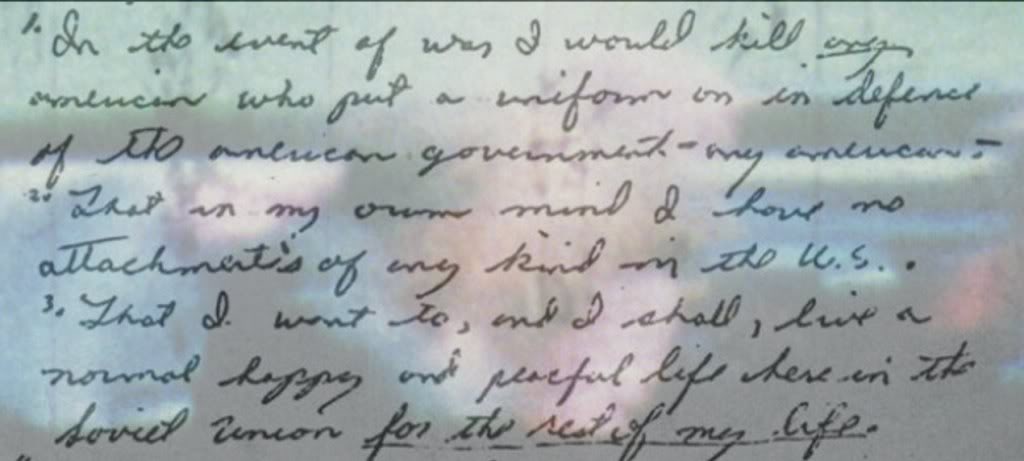 1. In the event of war I would kill any
american who put a uniform on in defence
of the american government - any american. -
2. That in my own mind I have no
attachment's of any kind in the U.S..
3. That I want to, and I shall, live a
normal happy and peaceful life here in the
Soviet Union for the rest of my life.